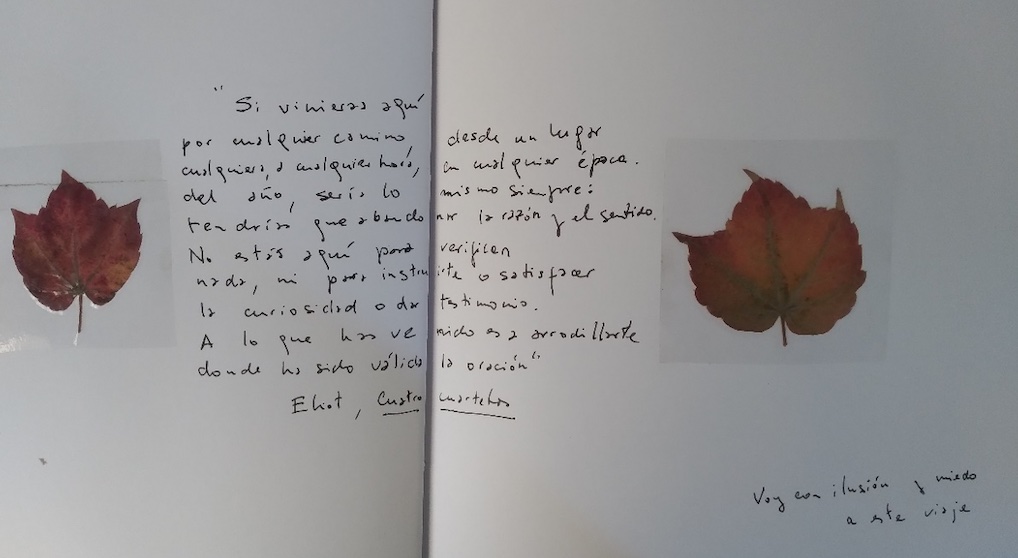 "Si vinieras aquí
por cualquier camino desde un lugar
cualquiera, a cualquier hora, en cualquier época.
del año, sería lo mismo siempre:
tendrías que abandonar la razón y el sentido.
No estás aquí para verificar
nada, ni para instruirte o satisfacer
la curiosidad o dar testimonio.
A lo que has venido es a arrodillarte
donde ha sido válida la oración"
Eliot, Cuatro cuartetos
Voy con ilusión y miedo
a este viaje